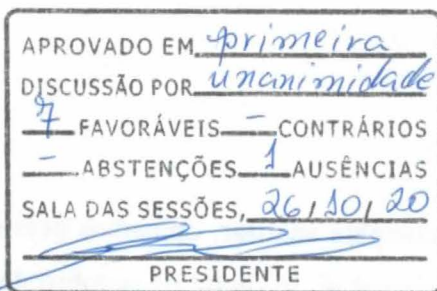 APROVADO EM primeira
DISCUSSÃO POR unanimidade
7 FAVORÁVEIS - CONTRÁRIOS
- ABSTENÇÕES 1 AUSÊNCIAS
SALA DAS SESSÕES, 26/10/20
PRESIDENTE